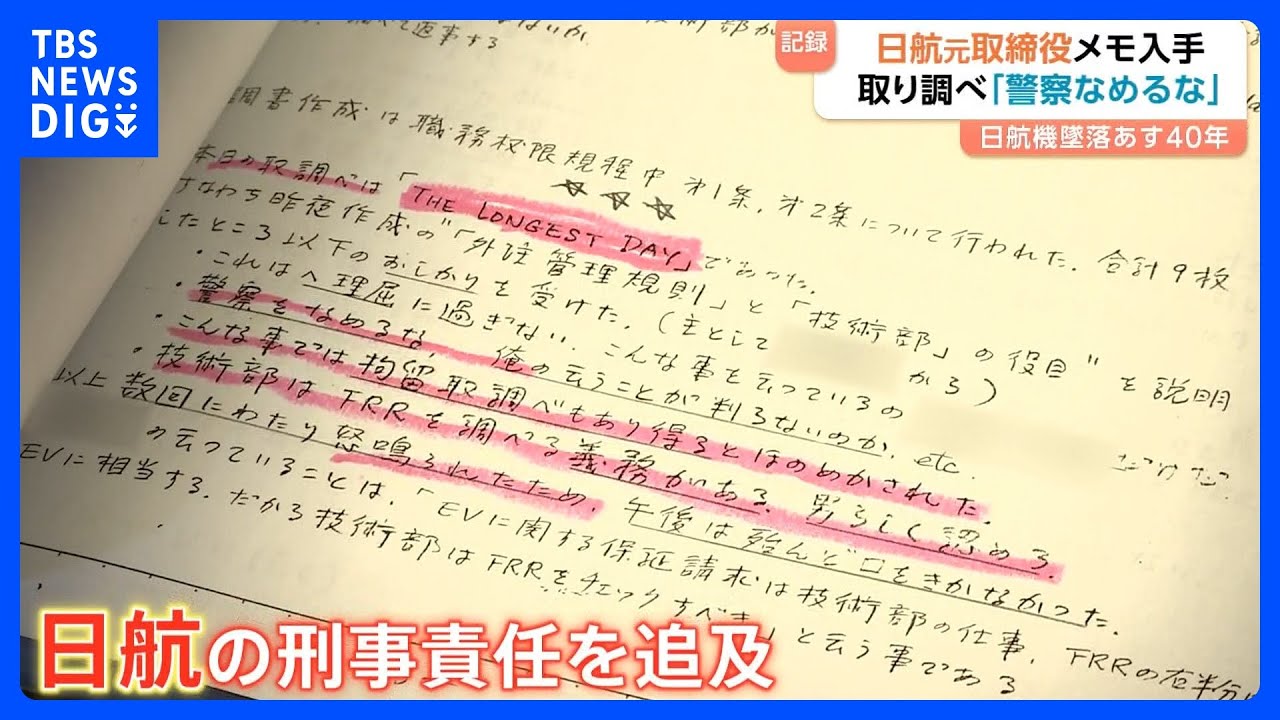 TBS
NEWS
DIG
記録
日航元取締役メモ入手
取り調べ「警察なめるな」
日航機墜落あす40年
返事する
調書作成は職務权限規程中 オ1条、オ2条について行われた. 合計9枚
本日の取調べは「THE LONGEST DAY」であった.
すなわち昨夜作成の"「外注管理規則」と「技術部」の役目"を説明
したところ以下のおしかりを受けた. (主として から)
・これはヘ理屈に過ぎない. こんな事を云っているの だけだ
・警察をなめるな, 俺の云うことが判らないのか, etc.
・こんな事では拘留取調べもあり得るとほのめかされた.
・技術部はFRRを調べる義務がある. 男らしく認めろ.
以上数回にわたり怒鳴られたため, 午後は殆んど口をきかなかった.
の云っていることは,「EVに関する保証請求は技術部の仕事, FRRの右半分は
EVに相当する. だから技術部はFRRをチェックすべき」と云う事である
日航の刑事責任を追及